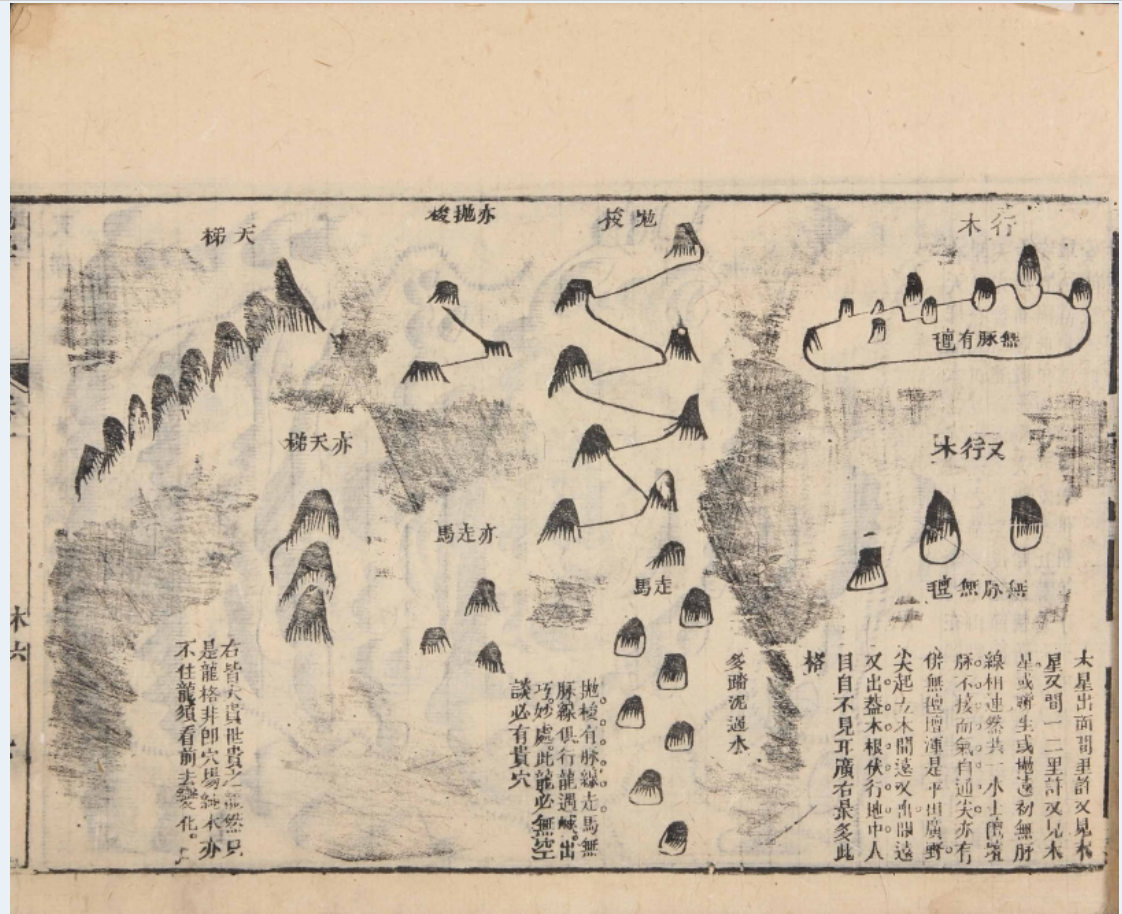 行木
無脉有氊
又行木
無脉無氊
木星出面間里許又見木
星又間一二里許又見木
星或斷生或抛遠初無肝
線相連然共一水土氊壇
脉不接而氣自通尖亦有
併無氊壇渾是平田廣野
尖起立木間遠又出間遠
又出蓋木根伏行地中人
目自不見耳廣右最多此
格
抛梭
走馬
多踏泥過水
亦抛梭
亦走馬
抛梭有脉線走馬無
脉線俱行龍過峽出
巧妙處此龍必無空
談必有貴穴
天梯
亦天梯
右皆大貴世貴之龍然只
是龍格非即穴場縱水亦
不住龍須看前去變化
木六